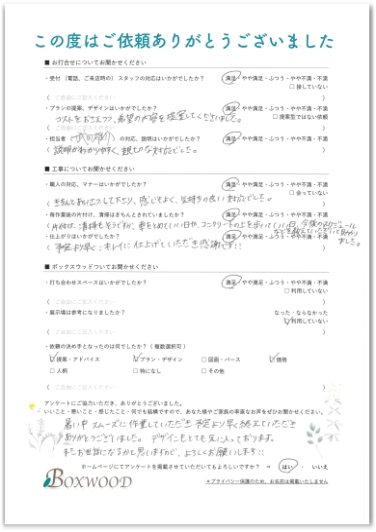 この度はご依頼ありがとうございました
■ お打合せについてお聞かせください
・受付（電話、ご来店時の）スタッフの対応はいかがでしたか？ 満足・やや満足・ふつう・やや不満・不満
□ 接していない
（ ご自由にご記入ください ）
・プランの提案、デザインはいかがでしたか？ 満足・やや満足・ふつう・やや不満・不満
□ 提案型ではない依頼
（コストをおさえつつ、希望の内容を提案してくださいました。）
・担当者（ ）の対応、説明はいかがでしたか？ 満足・やや満足・ふつう・やや不満・不満
（説明がわかりやすく、親切な対応でした。）
■ 工事についてお聞かせください
・職人の対応、マナーはいかがでしたか？ 満足・やや満足・ふつう・やや不満・不満
□ 会っていない
（きちんとあいさつして下さり、感じもよく、気持ちの良い対応でした。）
・毎作業後の片付け、清掃はきちんとされていましたか？ 満足・やや満足・ふつう・やや不満・不満
・仕上がりはいかがでしたか？ 満足・やや満足・ふつう・やや不満・不満
（予定より早く、キレイに仕上げていただき感謝です!!）
■ ボックスウッドついてお聞かせください
・打ち合わせスペースはいかがでしたか？ 満足・やや満足・ふつう・やや不満・不満
□ 利用していない
（ ご自由にご記入ください ）
・展示場は参考になりましたか？ なった・ならなかった
☑ 利用していない
（ ご自由にご記入ください ）
・依頼の決め手となったのは何でしたか？（ 複数選択可 ）
☑ 提案・アドバイス ☑ プラン・デザイン □ 図面・パース ☑ 価格
□ 人柄 □ 特になし □ その他
（ ご自由にご記入ください ）
アンケートにご協力いただき、ありがとうございました。
・いいこと・悪いこと・感じたこと・何でも結構ですので、あなた様やご家族の率直なお声をぜひお聞かせください。
暑い中スムーズに作業していただき予定より早く終えていただき
ありがとうございました。デザインもとても気に入っております。
またお世話になるかと思いますので、よろしくお願いします!!
ホームページにてアンケートを掲載させていただいてもよろしいですか？ → はい ・ いいえ
BOXWOOD
＊プライバシー保護のため、お名前は掲載いたしません